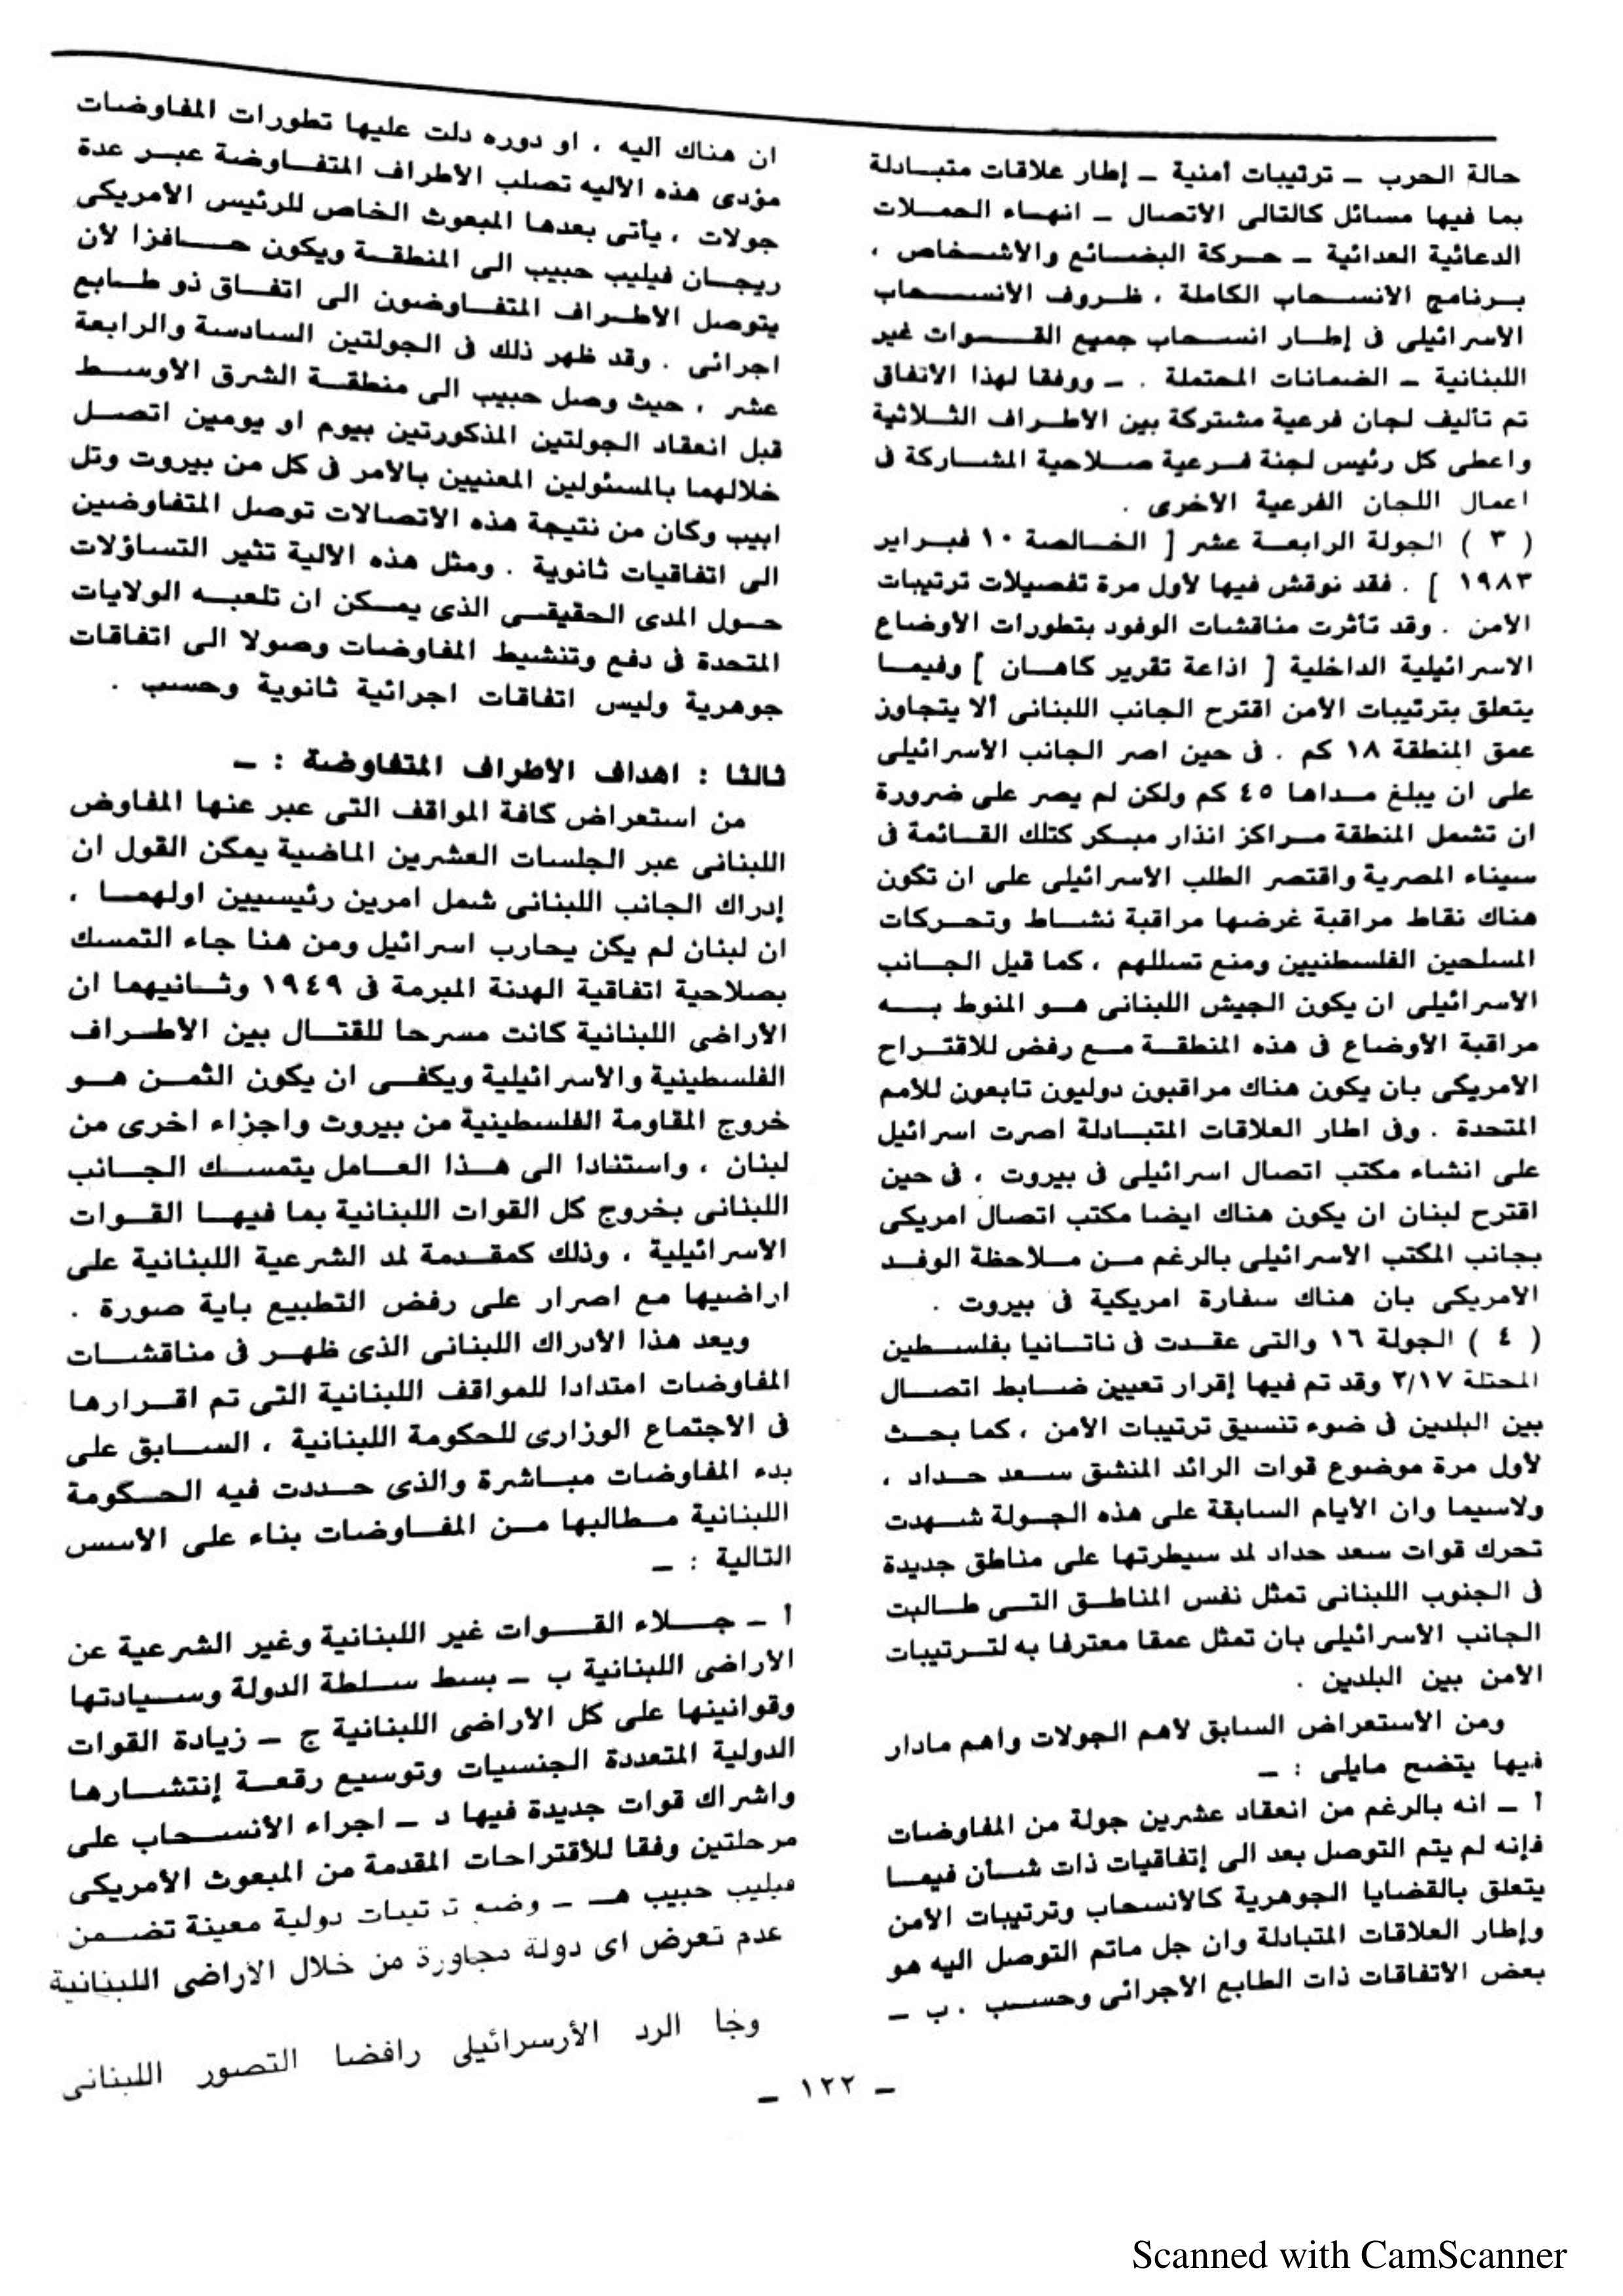 حالة الحرب ـ ترتيبات أمنية ـ إطار علاقات متبادلة
بما فيها مسائل كالتالى الاتصال ـ انهاء الحملات
الدعائية العدائية ـ حركة البضائع والأشخاص ،
برنامج الانسحاب الكاملة ، ظروف الانسحاب
الاسرائيلى فى إطار انسحاب جميع القوات غير
اللبنانية ـ الضمانات المحتملة . ـ ووفقا لهذا الاتفاق
تم تأليف لجان فرعية مشتركة بين الأطراف الثلاثية
واعطى كل رئيس لجنة فرعية صلاحية المشاركة فى
اعمال اللجان الفرعية الأخرى .
( ٣ ) الجولة الرابعة عشر [ الخالصة ١٠ فبراير
١٩٨٣ ] . فقد نوقش فيها لأول مرة تفصيلات ترتيبات
الأمن . وقد تأثرت مناقشات الوفود بتطورات الأوضاع
الاسرائيلية الداخلية [ اذاعة تقرير كاهان ] وفيما
يتعلق بترتيبات الأمن اقترح الجانب اللبنانى ألا يتجاوز
عمق المنطقة ١٨ كم . فى حين اصر الجانب الأسرائيلى
على ان يبلغ مداها ٤٥ كم ولكن لم يصر على ضرورة
ان تشمل المنطقة مراكز انذار مبكر كتلك القائمة فى
سيناء المصرية واقتصر الطلب الأسرائيلى على ان تكون
هناك نقاط مراقبة غرضها مراقبة نشاط وتحركات
المسلحين الفلسطنيين ومنع تسللهم ، كما قيل الجانب
الاسرائيلى ان يكون الجيش اللبنانى هو المنوط به
مراقبة الأوضاع فى هذه المنطقة مع رفض للاقتراح
الأمريكى بان يكون هناك مراقبون دوليون تابعون للأمم
المتحدة . وفى اطار العلاقات المتبادلة اصرت اسرائيل
على انشاء مكتب اتصال اسرائيلى فى بيروت ، فى حين
اقترح لبنان ان يكون هناك ايضا مكتب اتصال امريكى
بجانب المكتب الأسرائيلى بالرغم من ملاحظة الوفد
الامريكى بان هناك سفارة امريكية فى بيروت .
( ٤ ) الجولة ١٦ والتى عقدت فى ناتانيا بفلسطين
المحتلة ٢/١٧ وقد تم فيها إقرار تعيين ضابط اتصال
بين البلدين فى ضوء تنسيق ترتيبات الأمن ، كما بحث
لأول مرة موضوع قوات الرائد المنشق سعد حداد ،
ولاسيما وان الأيام السابقة على هذه الجولة شهدت
تحرك قوات سعد حداد لمد سيطرتها على مناطق جديدة
فى الجنوب اللبنانى تمثل نفس المناطق التى طالبت
الجانب الأسرائيلى بان تمثل عمقا معترفا به لترتيبات
الامن بين البلدين .
ومن الأستعراض السابق لأهم الجولات واهم مادار
فيها يتضح مايلى : ـ
أ ـ انه بالرغم من انعقاد عشرين جولة من المفاوضات
فإنه لم يتم التوصل بعد الى إتفاقيات ذات شأن فيما
يتعلق بالقضايا الجوهرية كالانسحاب وترتيبات الأمن
وإطار العلاقات المتبادلة وان جل ماتم التوصل اليه هو
بعض الاتفاقات ذات الطابع الأجرائى وحسب . ب ـ
ان هناك اليه ، او دوره دلت عليها تطورات المفاوضات
مؤدى هذه الأليه تصلب الأطراف المتفاوضة عبر عدة
جولات ، يأتى بعدها المبعوث الخاص للرئيس الأمريكى
ريجان فيليب حبيب الى المنطقة ويكون حافزا لأن
يتوصل الأطراف المتفاوضون الى اتفاق ذو طابع
اجرائى . وقد ظهر ذلك فى الجولتين السادسة والرابعة
عشر ، حيث وصل حبيب الى منطقة الشرق الأوسط
قبل انعقاد الجولتين المذكورتين بيوم او يومين اتصل
خلالهما بالمسئولين المعنيين بالأمر فى كل من بيروت وتل
ابيب وكان من نتيجة هذه الاتصالات توصل المتفاوضين
الى اتفاقيات ثانوية . ومثل هذه الألية تثير التساؤلات
حول المدى الحقيقى الذى يمكن ان تلعبه الولايات
المتحدة فى دفع وتنشيط المفاوضات وصولا الى اتفاقات
جوهرية وليس اتفاقات اجرائية ثانوية وحسب .
ثالثا : اهداف الأطراف المتفاوضة : ـ
من استعراض كافة المواقف التى عبر عنها المفاوض
اللبنانى عبر الجلسات العشرين الماضية يمكن القول ان
إدراك الجانب اللبنانى شمل امرين رئيسيين اولهما ،
ان لبنان لم يكن يحارب اسرائيل ومن هنا جاء التمسك
بصلاحية اتفاقية الهدنة المبرمة فى ١٩٤٩ وثانيهما ان
الأراضى اللبنانية كانت مسرحا للقتال بين الأطراف
الفلسطينية والأسرائيلية ويكفى ان يكون الثمن هو
خروج المقاومة الفلسطينية من بيروت واجزاء اخرى من
لبنان ، واستنادا الى هذا العامل يتمسك الجانب
اللبنانى بخروج كل القوات اللبنانية بما فيها القوات
الأسرائيلية ، وذلك كمقدمة لمد الشرعية اللبنانية على
اراضيها مع اصرار على رفض التطبيع باية صورة .
ويعد هذا الأدراك اللبنانى الذى ظهر فى مناقشات
المفاوضات امتدادا للمواقف اللبنانية التى تم اقرارها
فى الاجتماع الوزارى للحكومة اللبنانية ، السابق على
بدء المفاوضات مباشرة والذى حددت فيه الحكومة
اللبنانية مطالبها من المفاوضات بناء على الأسس
التالية : ـ
أ ـ جلاء القوات غير اللبنانية وغير الشرعية عن
الأراضى اللبنانية ب ـ بسط سلطة الدولة وسيادتها
وقوانينها على كل الأراضى اللبنانية ج ـ زيادة القوات
الدولية المتعددة الجنسيات وتوسيع رقعة إنتشارها
واشراك قوات جديدة فيها د ـ اجراء الأنسحاب على
مرحلتين وفقا للأقتراحات المقدمة من المبعوث الأمريكى
فيليب حبيب هـ ـ وضع ترتيبات دولية معينة تضمن
عدم تعرض اى دولة مجاورة من خلال الأراضى اللبنانية
وجا الرد الأرسرائيلى رافضا التصور اللبنانى
ـ ١٢٢ ـ
Scanned with CamScanner